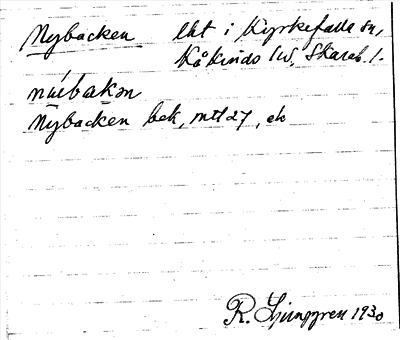 Nybacken lht i Kyrkefalla sn,
Kåkinds hd, Skarab. l.
núbakən
Nybacken bek, mtl 27, ek
R. Ljunggren 1930